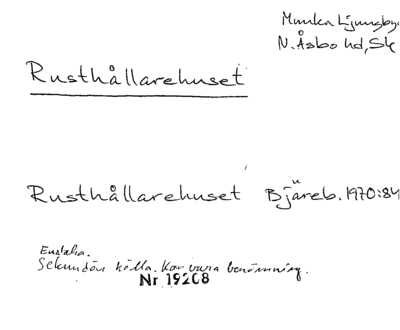 Munka Ljungby
N. Åsbo hd, Sk
Rusthållarehuset
Rusthållarehuset Bjäreb. 1970:84
Enstaka.
Sekundär källa. Kan vara benämning.
Nr 19208